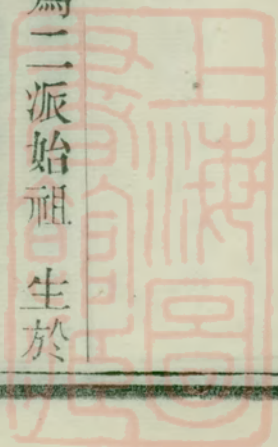 為二派始祖 生於
上海圖
書館藏